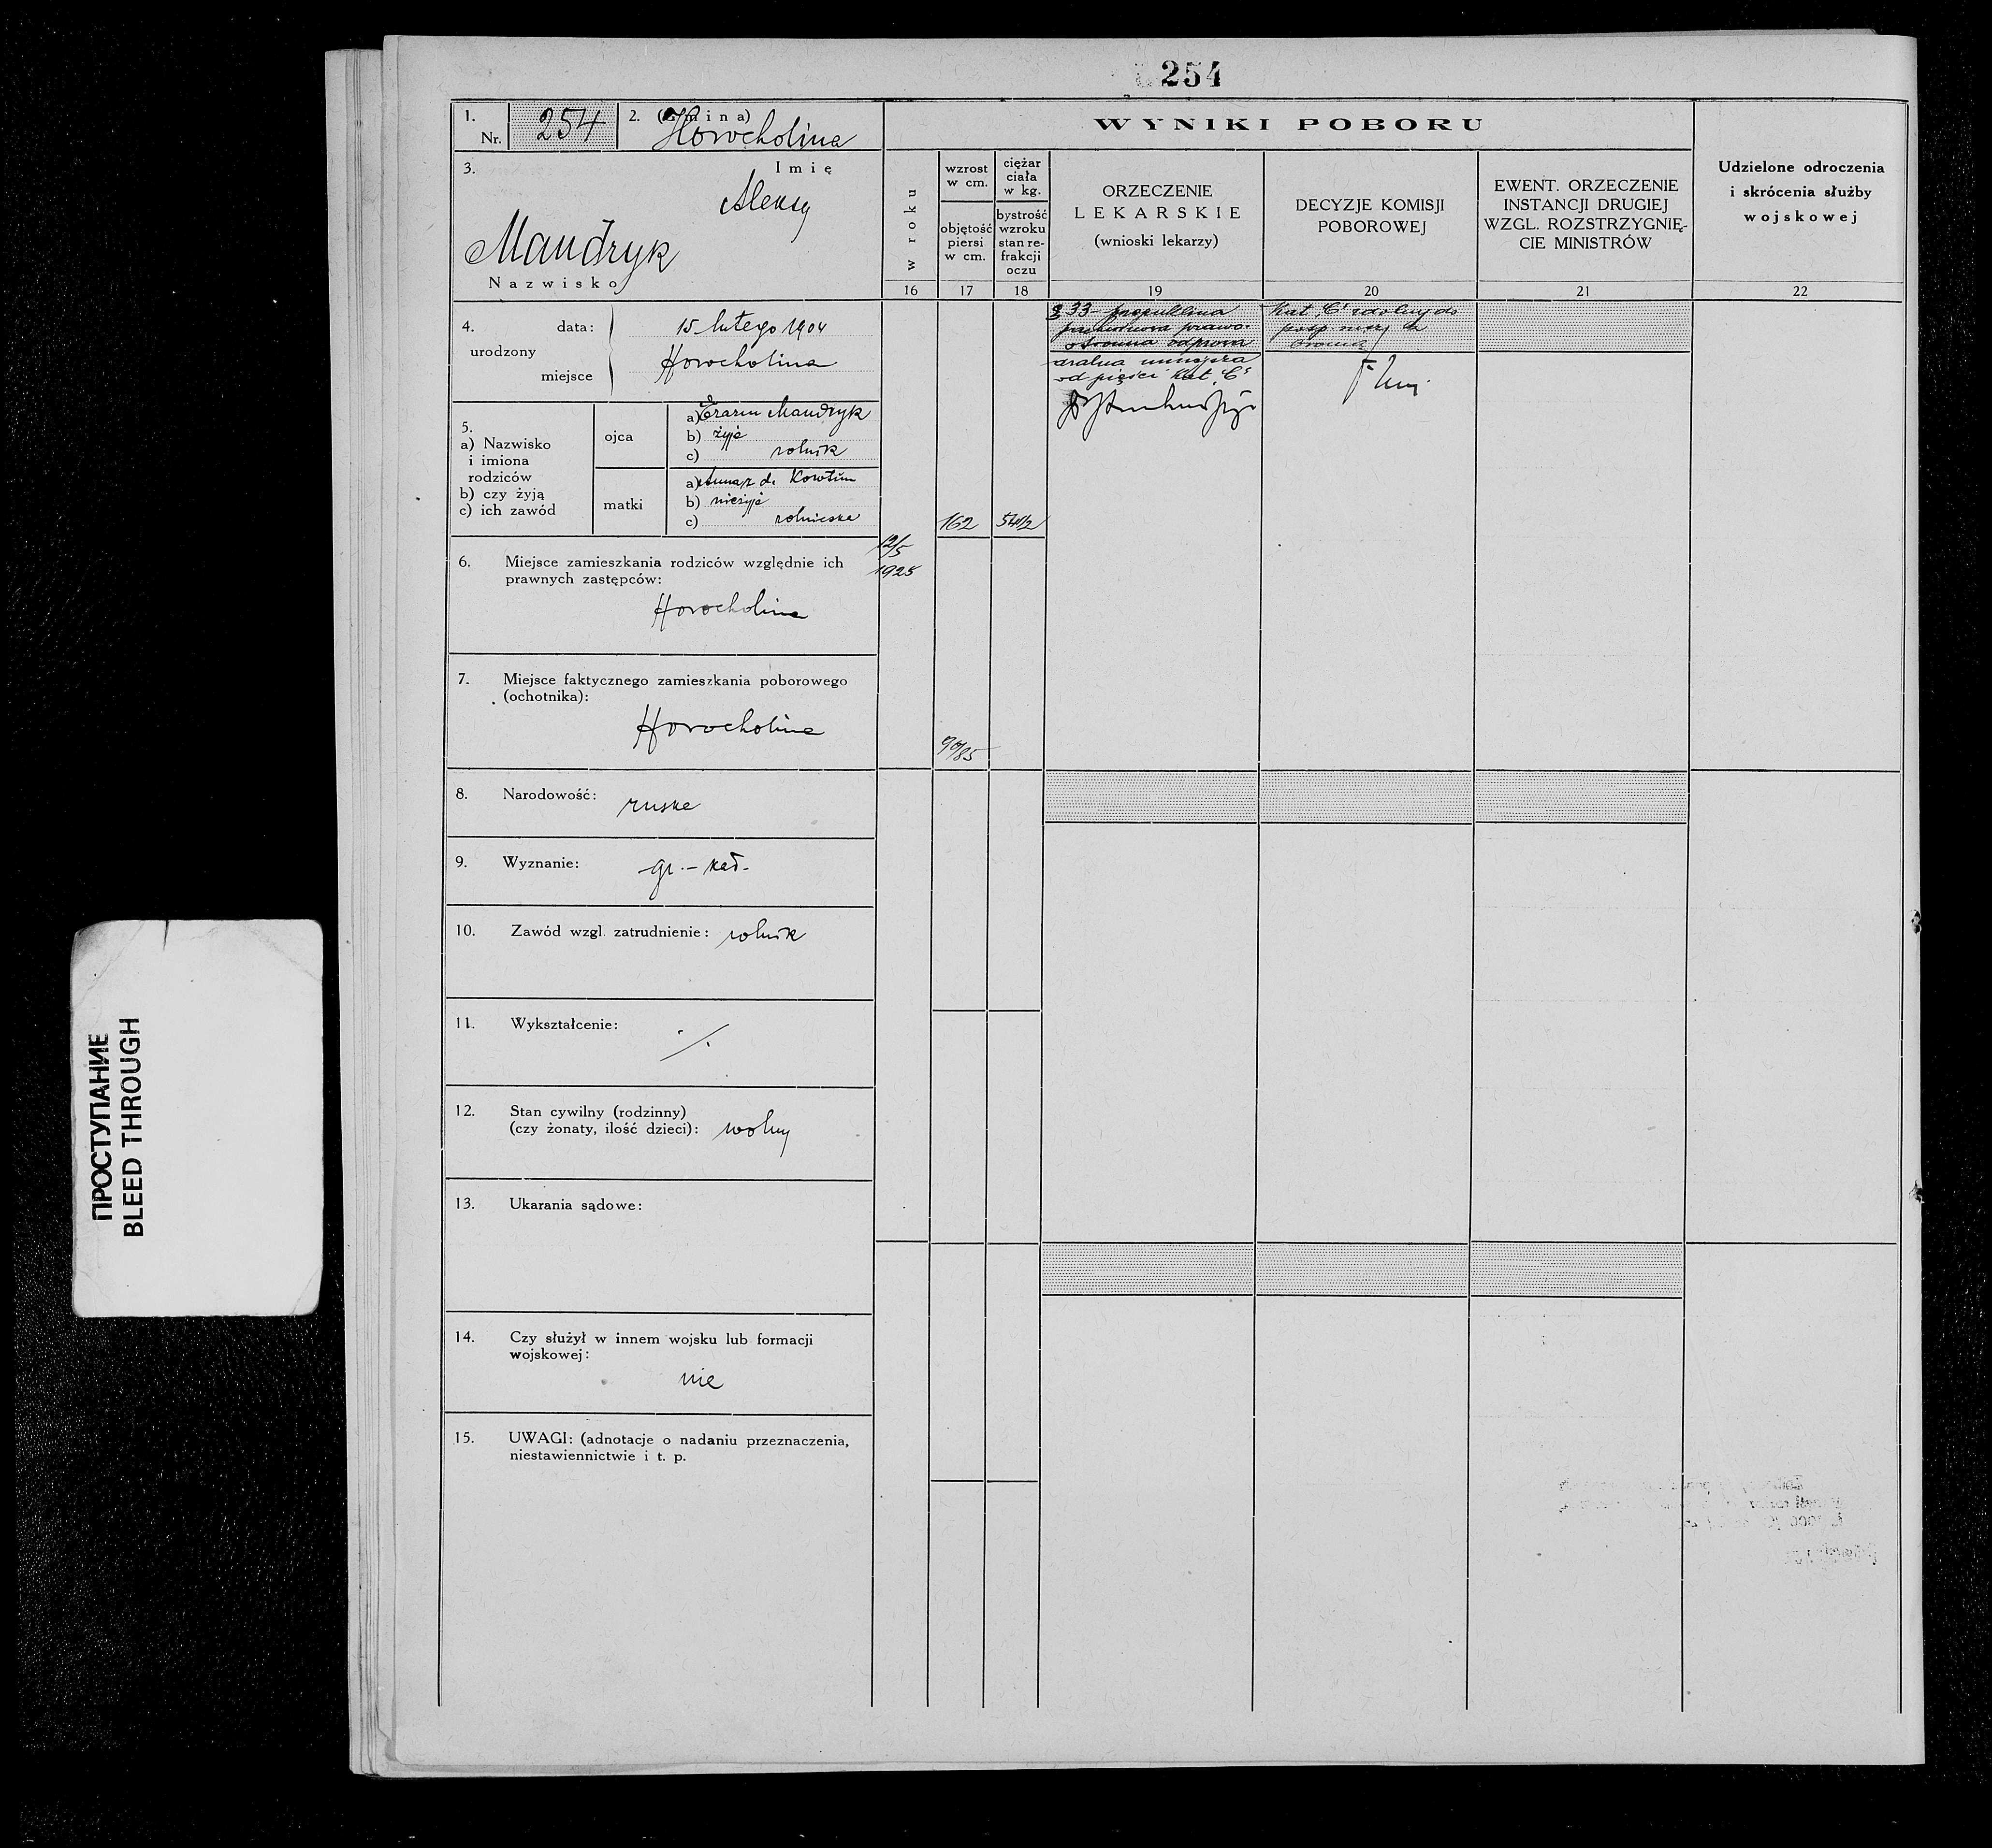 254
1.
Nr. 254
2. (Gmina)
Horocholina
3.
Imię
Aleksy
Mandryk
Nazwisko
4.
urodzony
data: 15 lutego 1904
miejsce Horocholina
5.
a) Nazwisko
i imiona
rodziców
b) czy żyją
c) ich zawód
ojca
a) Erazm Mandryk
b) żyje
c) rolnik
matki
a) Anna z d.
b) nieżyje
c) rolniczka
6. Miejsce zamieszkania rodziców względnie ich
prawnych zastępców:
Horocholina
7. Miejsce faktycznego zamieszkania poborowego
(ochotnika):
Horocholina
8. Narodowość: ruska
9. Wyznanie: gr.-kat.
10. Zawód wzgl. zatrudnienie: rolnik
11. Wykształcenie: ./.
12. Stan cywilny (rodzinny)
(czy żonaty, ilość dzieci): wolny
13. Ukarania sądowe:
14. Czy służył w innem wojsku lub formacji
wojskowej:
nie
15. UWAGI: (adnotacje o nadaniu przeznaczenia,
niestawiennictwie i t. p.
WYNIKI POBORU
w roku
16
wzrost
w cm.
objętość
piersi
w cm.
17
ciężar
ciała
w kg.
bystrość
wzroku
stan re-
frakcji
oczu
18
ORZECZENIE
LEKARSKIE
(wnioski lekarzy)
19
DECYZJE KOMISJI
POBOROWEJ
20
EWENT. ORZECZENIE
INSTANCJI DRUGIEJ
WZGL. ROZSTRZYGNIĘ-
CIE MINISTRÓW
21
Udzielone odroczenia
i skrócenia służby
wojskowej
22
12/5
1925
162
54 1/2
90/85
§ 33 przepuklina
pachwinowa prawo-
stronna odprowa
dzalna mniejsza
od pięści Kat. "C"
Kat. "C" zdolny do
posp. rusz. z
bronią
ПРОСТУПАНИЕ
BLEED THROUGH